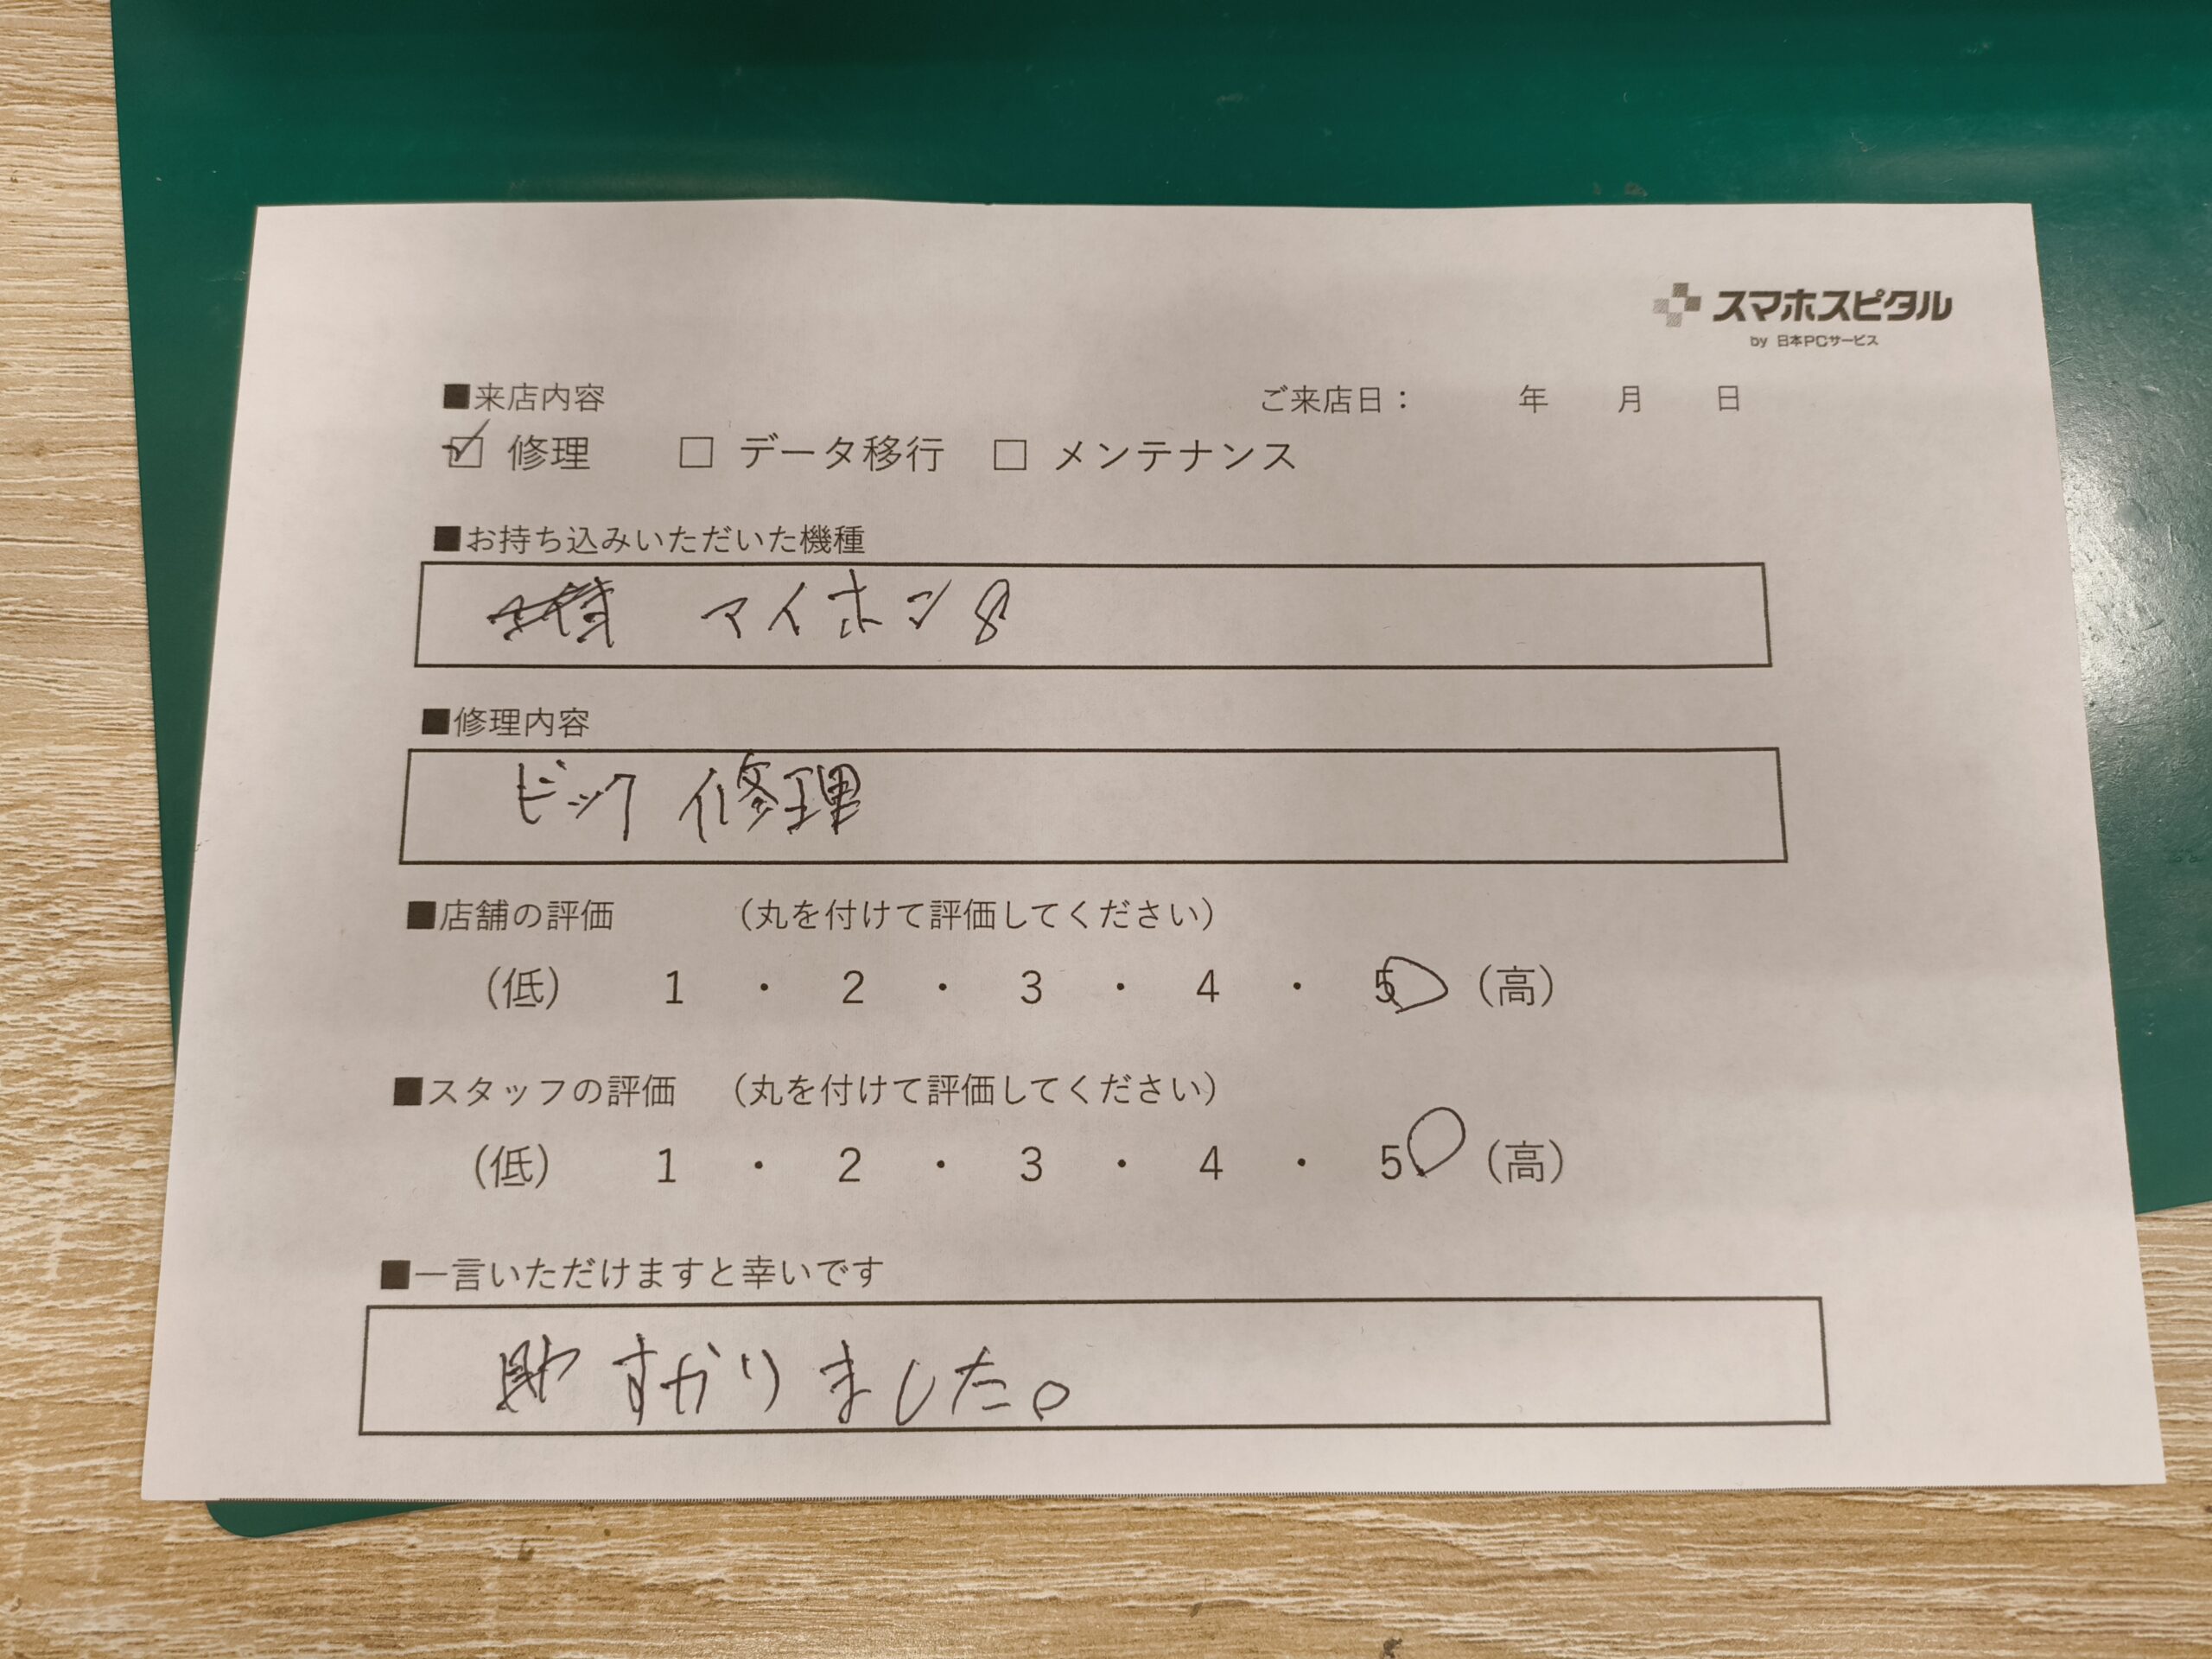 スマホスピタル
by 日本PCサービス
■来店内容 ご来店日： 年 月 日
☑ 修理 □ データ移行 □ メンテナンス
■お持ち込みいただいた機種
アイホン8
■修理内容
ビック 修理
■店舗の評価 （丸を付けて評価してください）
（低） 1 ・ 2 ・ 3 ・ 4 ・ 5 （高）
■スタッフの評価 （丸を付けて評価してください）
（低） 1 ・ 2 ・ 3 ・ 4 ・ 5 （高）
■一言いただけますと幸いです
助すかりました。